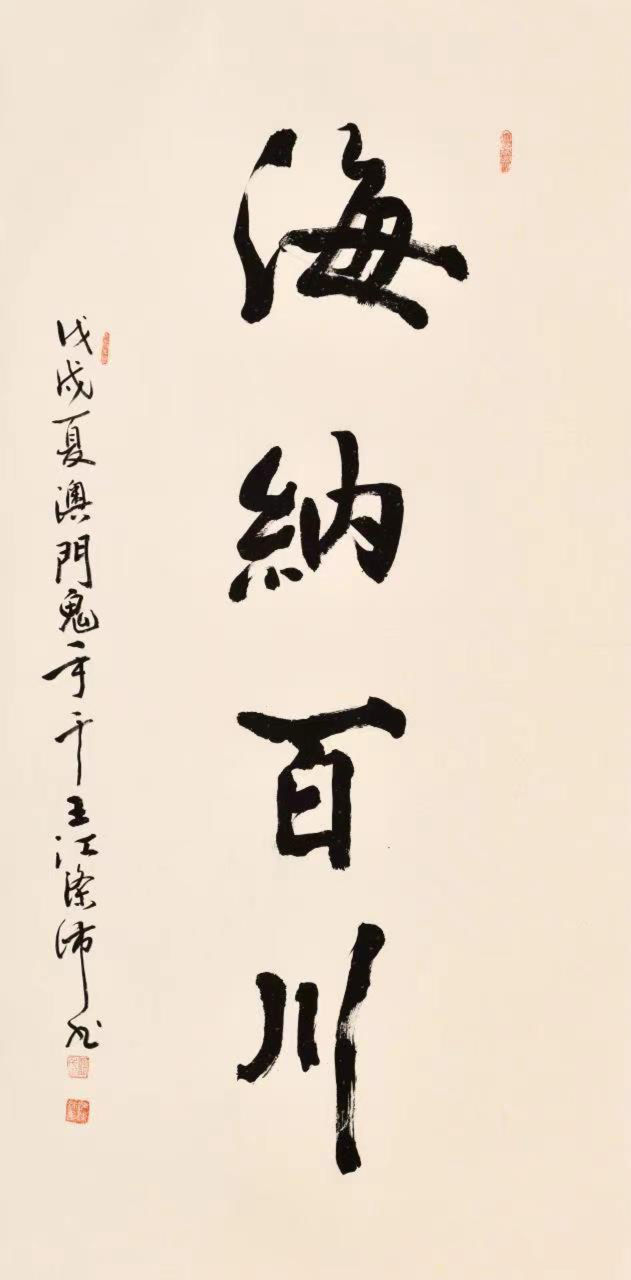 海納百川
戊戌夏澳門鬼手干王江滌沛书